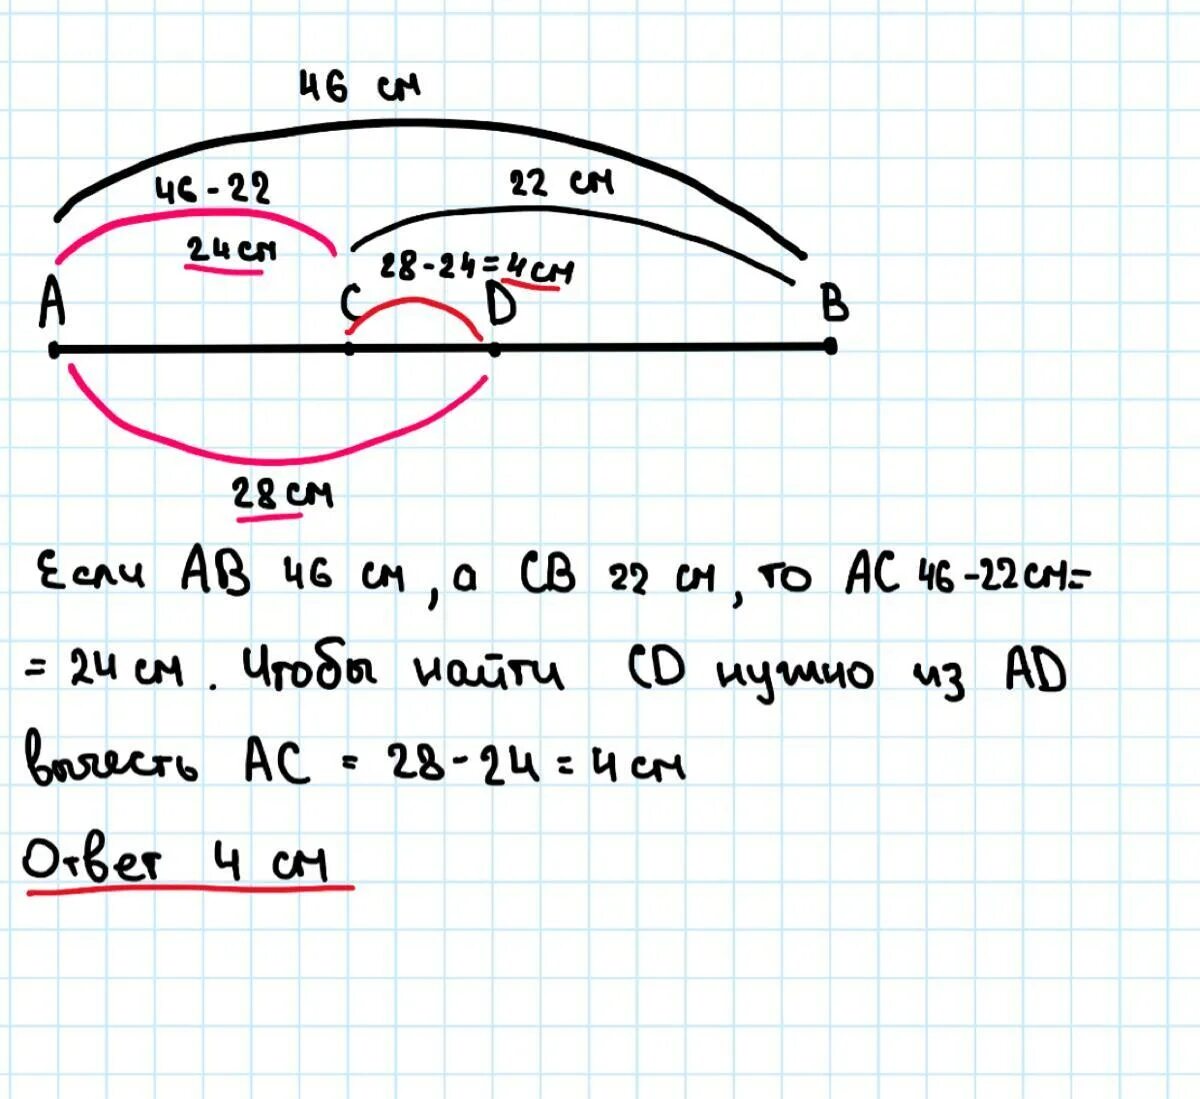 46 см
46-22
22 см
24см
28-24=4см
A
C
D
B
28см
Если AB 46 см, а CB 22 см, то AC 46-22см=
= 24 см. Чтобы найти CD нужно из AD
вычесть AC = 28-24=4см
Ответ 4 см